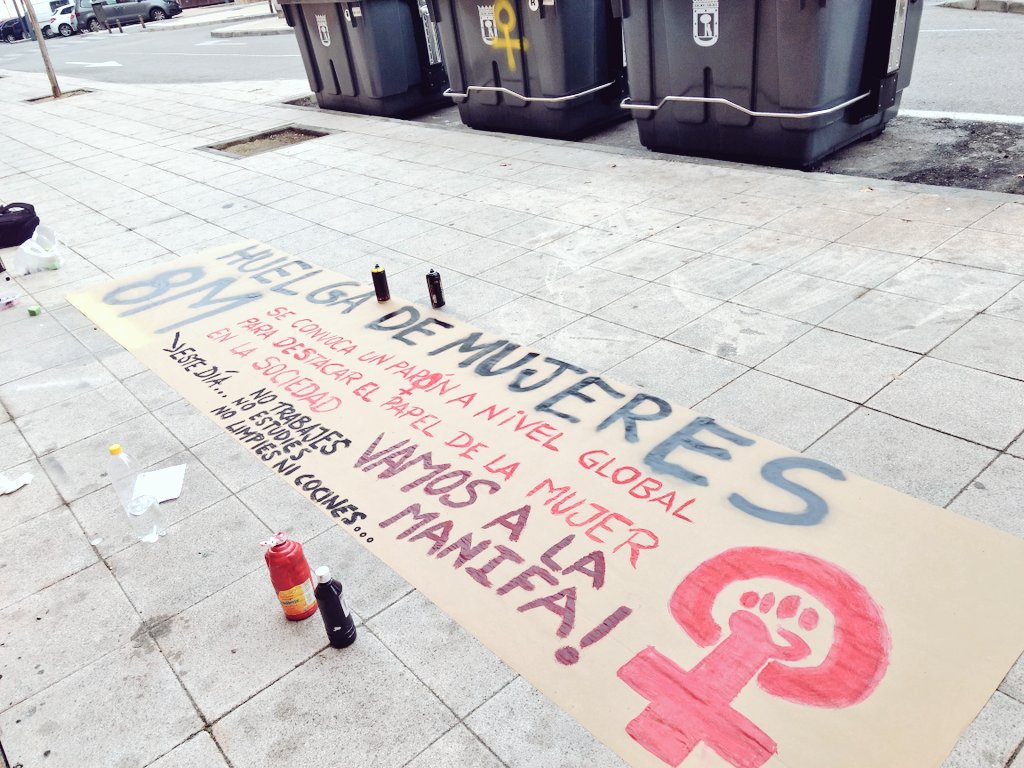 HUELGA DE MUJERES
8M
SE CONVOCA UN PARÓN A NIVEL GLOBAL
PARA DESTACAR EL PAPEL DE LA MUJER
EN LA SOCIEDAD
>ESTE DÍA... NO TRABAJES
NO ESTUDIES
NO LIMPIES NI COCINES...
VAMOS A LA
MANIFA!